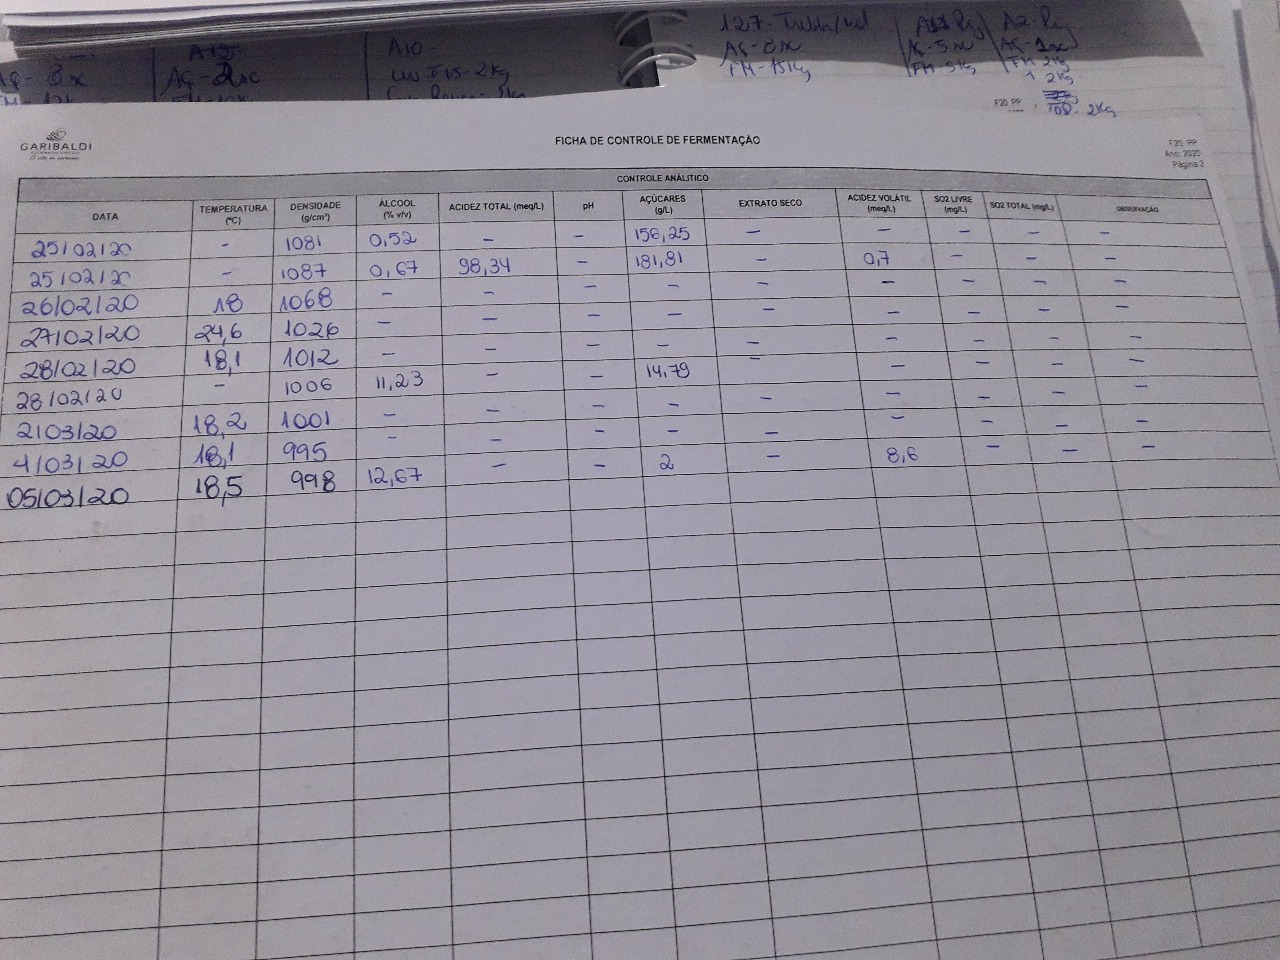 127-
A10-
Aç-3x
Aç-2x
Aç-5x
Aç-1x
FM-15Kg
FM-5Kg
FM-2Kg
1 2Kg
F20 PP
TOD- 2Kg
GARIBALDI
FICHA DE CONTROLE DE FERMENTAÇÃO
F20 PP
Ano: 2020
Página 2
CONTROLE ANÁLITICO
DATA TEMPERATURA (ºC) DENSIDADE (g/cm³) ÁLCOOL (% v/v) ACIDEZ TOTAL (meq/L) pH AÇÚCARES (g/L) EXTRATO SECO ACIDEZ VOLÁTIL (meq/L) SO2 LIVRE (mg/L) SO2 TOTAL (mg/L) OBSERVAÇÃO
25/02/20 - 1081 0,52 - - 156,25 - - - - -
25/02/20 - 1087 0,67 98,34 - 181,81 - 0,7 - - -
26/02/20 18 1068 - - - - - - - - -
27/02/20 24,6 1026 - - - - - - - - -
28/02/20 18,1 1012 - - - - - - - - -
28/02/20 - 1006 11,23 - - 14,79 - - - - -
2/03/20 18,2 1001 - - - - - - - - -
4/03/20 18,1 995 - - - - - - - - -
05/03/20 18,5 998 12,67 - - 2 - 8,6 - - -